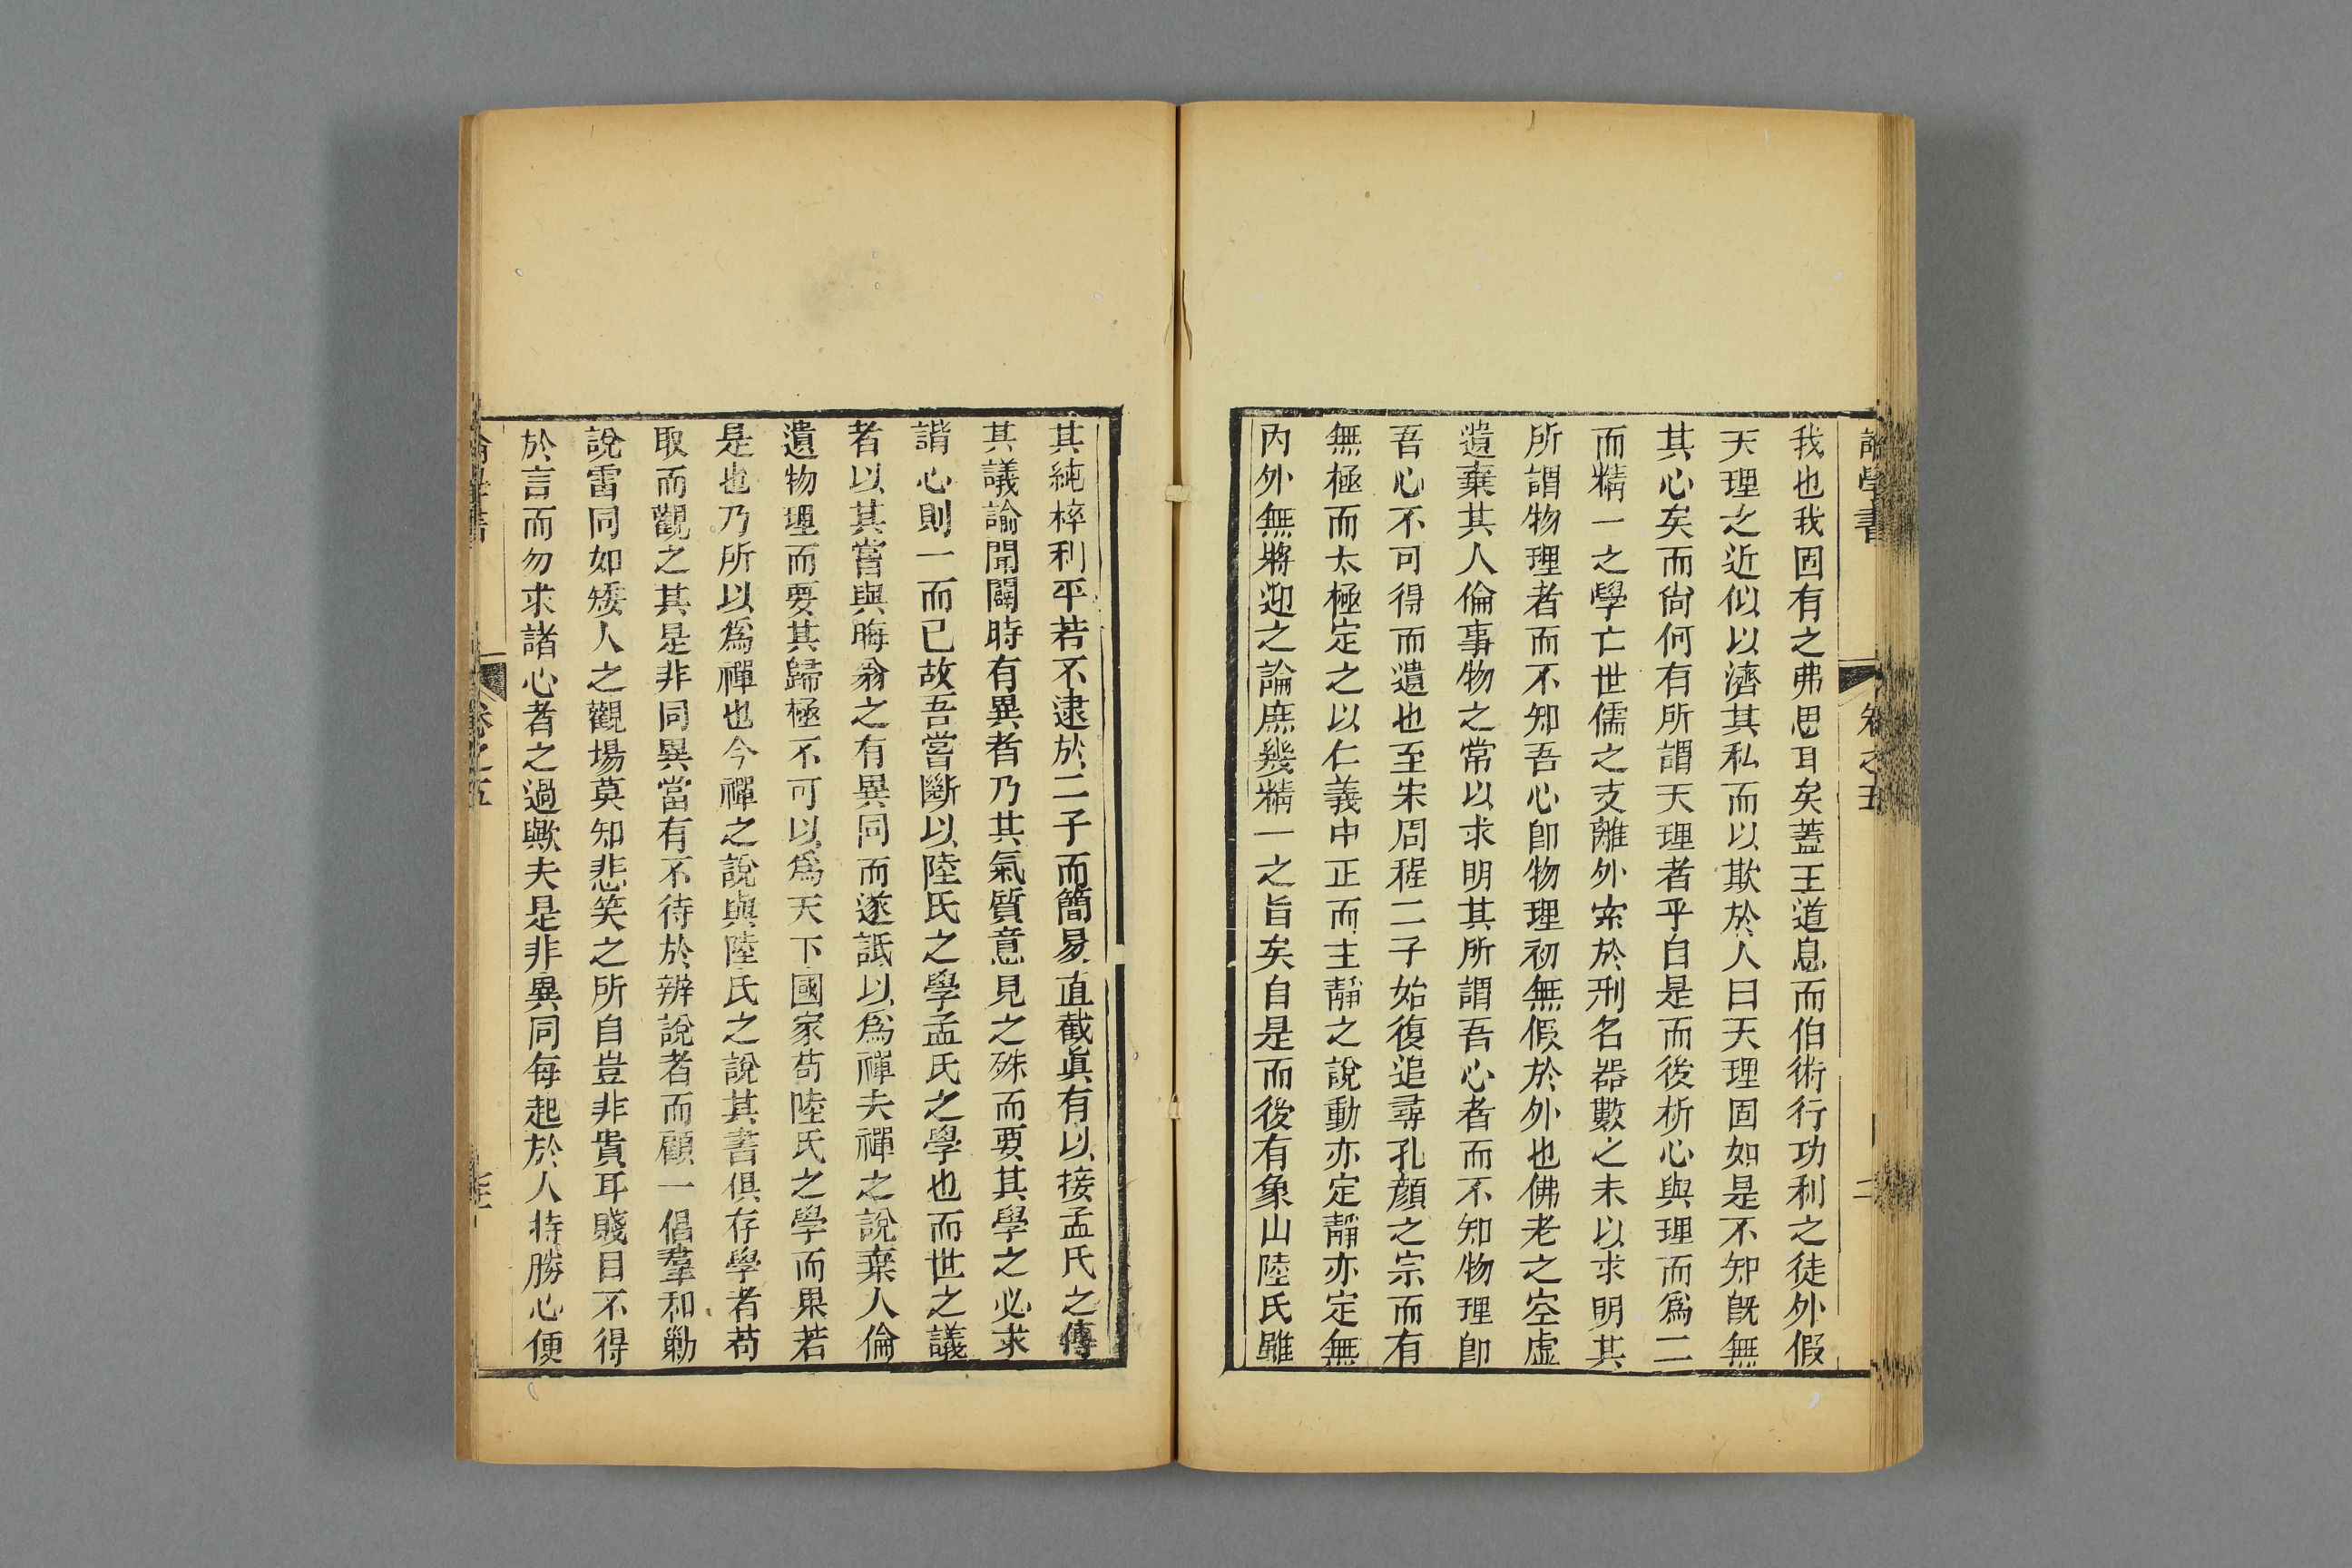 論學書 卷之五 二
我也我固有之弗思耳矣蓋王道息而伯術行功利之徒外假
天理之近似以濟其私而以欺於人曰天理固如是不知旣無
其心矣而尙何有所謂天理者乎自是而後析心與理而爲二
而精一之學亡世儒之支離外索於刑名器數之末以求明其
所謂物理者而不知吾心卽物理初無假於外也佛老之空虛
遺棄其人倫事物之常以求明其所謂吾心者而不知物理卽
吾心不可得而遺也至宋周程二子始復追尋孔顏之宗而有
無極而太極定之以仁義中正而主靜之說動亦定靜亦定無
內外無將迎之論庶幾精一之旨矣自是而後有象山陸氏雖
其純粹利平若不逮於二子而簡易直截眞有以接孟氏之傳
其議論開闢時有異者乃其氣質意見之殊而要其學之必求
諸心則一而已故吾嘗斷以陸氏之學孟氏之學也而世之議
者以其嘗與晦翁之有異同而遂詆以爲禪夫禪之說棄人倫
遺物理而要其歸極不可以爲天下國家苟陸氏之學而果若
是也乃所以爲禪也今禪之說與陸氏之說其書俱存學者苟
取而觀之其是非同異當有不待於辨說者而顧一倡羣和勦
說雷同如矮人之觀場莫知悲笑之所自豈非貴耳賤目不得
於言而勿求諸心者之過歟夫是非異同每起於人持勝心便
論學書 卷之五